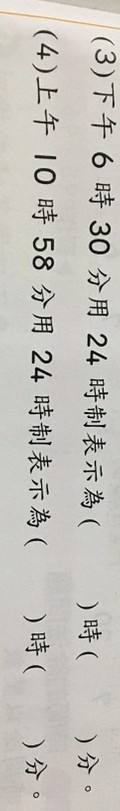 (3)下午 6 時 30 分用 24 時制表示為(　　)時(　　)分。
(4)上午 10 時 58 分用 24 時制表示為(　　)時(　　)分。